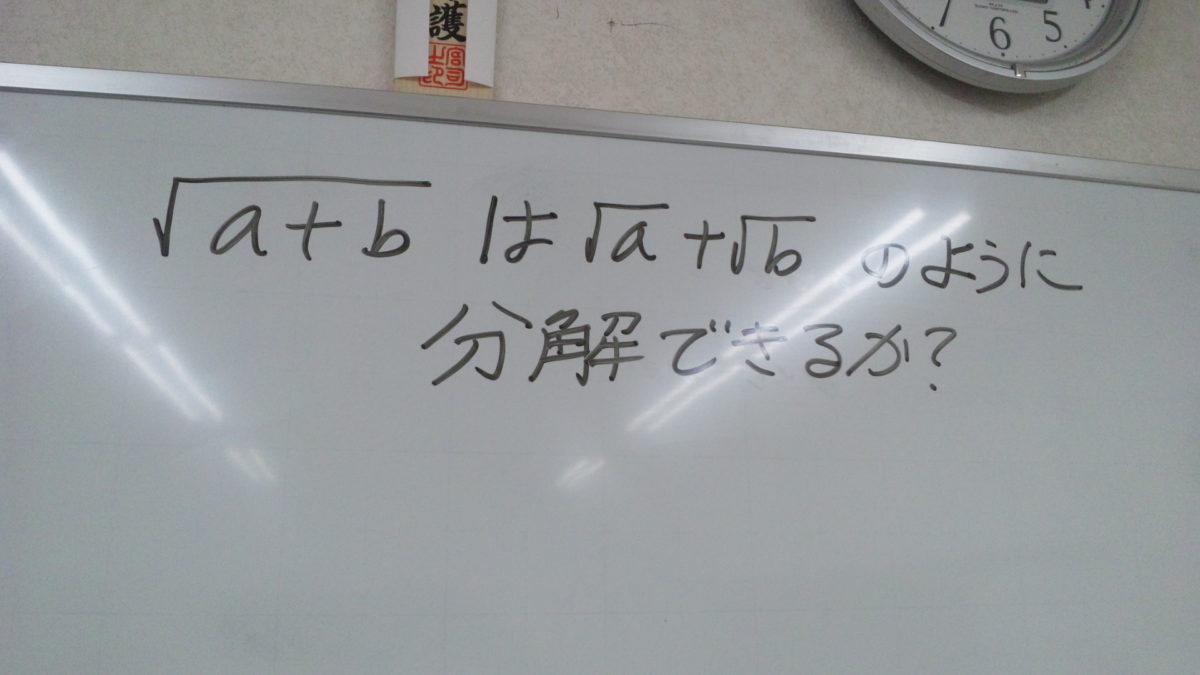 護
宮司之印
6 5
√a+b は √a+√b のように
分解できるか?